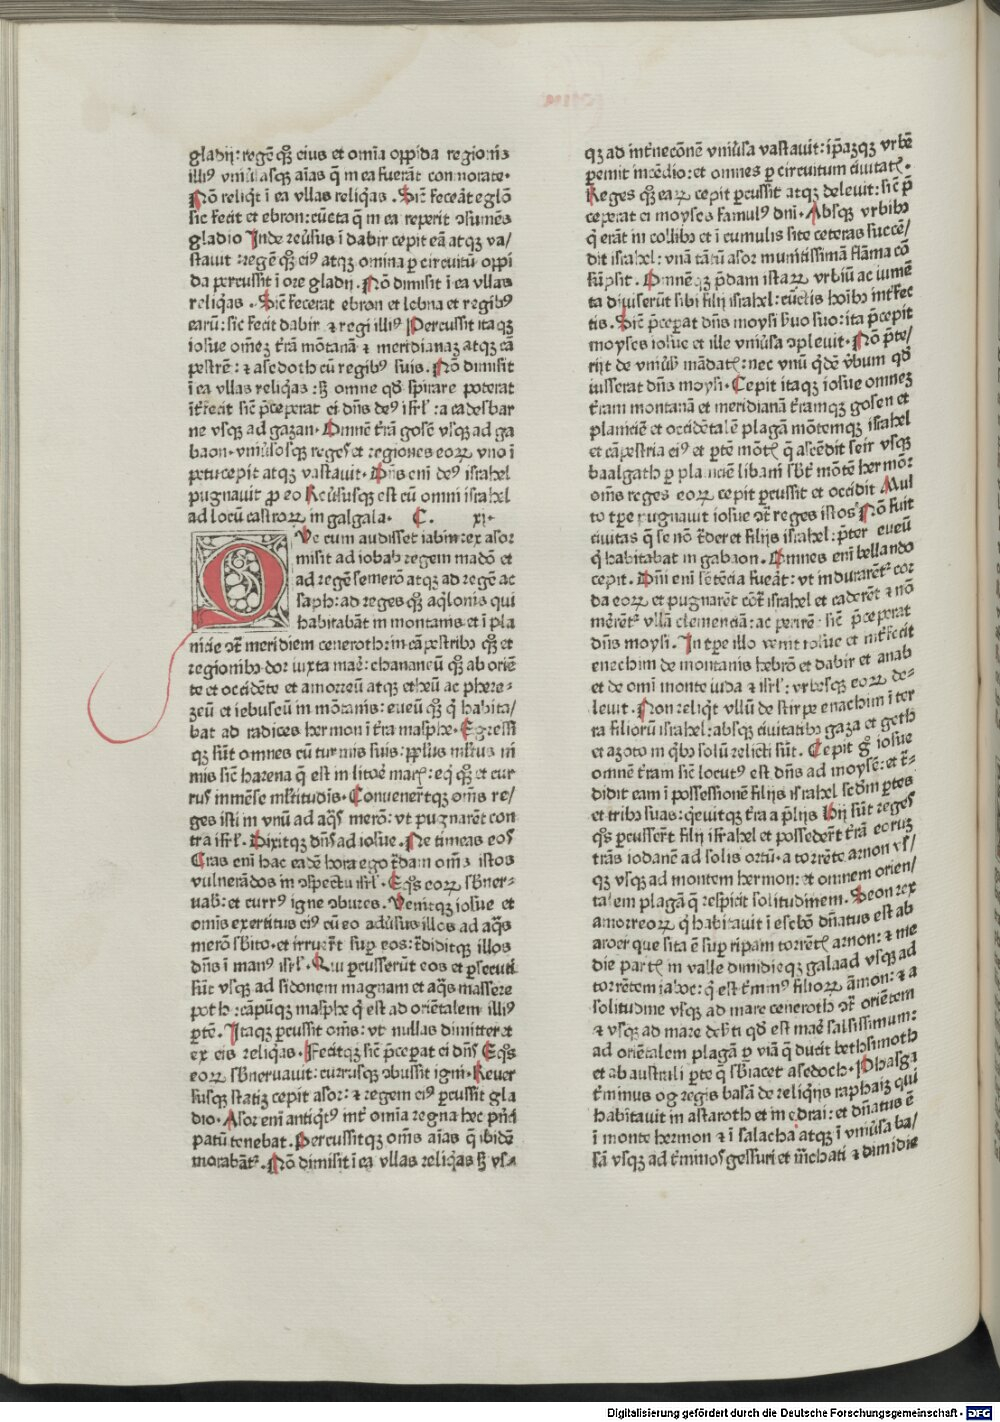 gladij: regē qꝫ eius et om̄ia oppida regionis
illiꝰ vniũsasqꝫ aīas q̄ in ea fuerāt commorate·
Nō reliqͥt ī ea vllas reliqͥas. Sic̄ feceāt eglō
sic fecit et ebron: cūcta q̄ in ea reperit ↄsumēs
gladio Inde reũsus ī dabir cepit eā atqꝫ va/
stauit: regē qꝫ eiꝰ atqꝫ omnia p circuitū oppi
da percussit ī ore gladij. Nō dimisit ī ea vllas
reliqͥas. Sic̄ fecerat ebron et lebna et regibꝰ
earū: sic fecit dabir ⁊ regi illiꝰ Percussit itaqꝫ
iosue om̄eꝫ t̄rā mōtanā ⁊ meridianaꝫ atqꝫ cā
pestrē: ⁊ asedoth cū regibꝰ suis. Nō dimisit
ī ea vllas reliqͥas: sꝫ omne qd̄ spirare poterat
īt̄fecit sic̄ p̄ceperat ei dn̄s deꝰ isrl̄: a cadesbar
ne vsqꝫ ad gazan. Omnē t̄rā gosē vsqꝫ ad ga
baon. vniũsosqꝫ reges et regiones eoꝝ vno ī
petu cepit atqꝫ vastauit. Dn̄s em̄ deꝰ israhel
pugnauit p eo Reũsusqꝫ est cū omni israhel
ad locū castroꝝ in galgala. C. xi.
QVe cum audisset iabin rex asor
misit ad iobab regem madō et
ad regē semerō atqꝫ ad regē ac
saph: ad reges qꝫ aqͥlonis qui
habitabāt in montanis et ī pla
nicie ↄt̄ meridiem ceneroth: in cāpestribꝫ qꝫ et
regionibꝫ dor iuxta mare: chananeū qꝫ ab oriē
te et occidēte et amorreū atqꝫ etheū ac phere-
zeū et iebuseū in mōtanis: eueū qꝫ qͥ habita/
bat ad radices hermon ī t̄ra masphe. Egressi
qꝫ sūt omnes cū turmis suis: pplus ml̄tus ni
mis sic̄ harena q̄ est in litoē marꝭ: eqͥ qꝫ et cur
rus inmēse ml̄titudīs. Conuener̄tqꝫ om̄s re/
ges isti in vnū ad aqͣs merō: vt pugnarēt con
tra isrl̄. Dixitqꝫ dn̄s ad iosue. Ne timeas eos
Cras em̄ hac eadē hora ego t̄dam om̄s istos
vulnerādos in ↄspectu isrl̄. Eqͦs eoꝝ sb̄ner-
uab: et currꝰ igne ↄbures. Venitqꝫ iosue et
om̄is exercitus eiꝰ cū eo adũsus illos ad aqͣs
merō sb̄ito. et irruer̄t sup eos: t̄diditqꝫ illos
dn̄s ī manꝰ isrl̄. Qui pcusserūt eos et psecuti
sūt vsqꝫ ad sidonem magnam et aqͣs massere
poth: cāpūqꝫ masphe qͥ est ad oriētalem illiꝰ
ptē. Itaqꝫ pcussit om̄s: vt nullas dimitteret
ex eis reliqͥas. Fecitqꝫ sic̄ p̄ceperat ei dn̄s Eqͦs
eoꝝ sb̄neruauit: currusqꝫ ↄbussit igni. Reuer
susqꝫ statiꝫ cepit asor: ⁊ regem eiꝰ pcussit gla
dio. Asor em̄ antiqͥtꝰ int̄ om̄ia regna hec p̄nci
patū tenebat. Percussitqꝫ om̄s aīas q̄ ibidē
morabātᷣ. Nō dimisit ī ea vllas reliqͥas sꝫ vs-
qꝫ ad int̄necōnē vniũsa vastauit: ip̄aꝫqꝫ vrbē
pemit incēdio: et omnes p circuitum ciuitatꝭ.
Reges qꝫ eaꝝ cepit pcussit atqꝫ deleuit: sic̄ p̄
ceperat ei moyses famulꝰ dn̄i. Absqꝫ vrbibꝫ
q̄ erāt in collibꝫ et ī cumulis site ceteras succē/
dit israhel: vnā tātū asor munitissimā flāma cō
sūpsit. Omnēqꝫ p̄dam istaꝝ vrbiū ac iumē
ta diuiserūt sibi filij israhel: cūctis hoībꝫ int̄fec
tis. Sic̄ p̄ceperat dn̄s moysi ſuo suo: ita p̄cepit
moyses iosue et ille vniũsa ↄpleuit. Nō p̄te/
rijt de vniũs̄ mādatꝭ: nec vnū qͥdē v̄bum qd̄
iusserat dn̄s moysi. Cepit itaqꝫ iosue omneꝫ
t̄ram montanā et meridianā t̄ramqꝫ gosen et
planiciē et occidētalē plagā mōtemqꝫ israhel
et cāpestria eiꝰ et ptē mōtꝭ q̄ ascēdit seir vsqꝫ
baalgath p planiciē libani sb̄t̄ mōtē hermō:
om̄s reges eoꝝ cepit pcussit et occidit Mul
to tpe pugnauit iosue ↄt̄ reges istos Nō fuit
ciuitas q̄ se nō t̄deret filijs israhel: p̄ter eueū
qͥ habitabat in gabaon. Omnes em̄ bellando
cepit. Dn̄i em̄ sētētia fueāt: vt indurarētᷣ cor
da eoꝝ et pugnarēt cōt̄ israhel et caderēt ⁊ nō
merētᷣ vllā clemenciā: ac perirē sic̄ p̄ceperat
dn̄s moysi. In tpe illo venit iosue et int̄fecit
enechim de montanis hebrō et dabir et anab
et de om̄i monte iuda ⁊ isrl̄: vrbesqꝫ eoꝝ de-
leuit. Non reliqͥt vllū de stirpe enachim ī ter
ra filiorū israhel: absqꝫ ciuitatibꝫ gaza et geth
et azoto in qͥbꝫ solū relicti sūt. Cepit g̊ iosue
omnē t̄ram sic̄ locutꝰ est dn̄s ad moysē: et t̄-
didit eam ī possessionē filijs israhel sed̄m ptes
et tribꝰ suas: qͥeuitqꝫ t̄ra a p̄lijs Hij sūt reges
qͦs pcusser̄t filij israhel et posseder̄t t̄rā eoruꝫ
trās iordanē ad solis ortū. a torrēte arnon vs/
qꝫ vsqꝫ ad montem hermon: et omnem orien/
talem plagā q̄ respicit solitudinem. Seon rex
amorreoꝝ qͥ habitauit ī esebō dn̄atus est ab
aroer que sita ē sup ripam torrētꝭ arnon: ⁊ me
die partꝭ in valle dimidieqꝫ galaad vsqꝫ ad
torrētem iaboc: qͥ est t̄minꝰ filioꝝ āmon: ⁊ a
solitudine vsqꝫ ad mare ceneroth ↄt̄ oriētem
⁊ vsqꝫ ad mare deb̄ti qd̄ est mare salsissimum:
ad oriētalem plagā p viā q̄ ducit bethsimoth
et ab australi pte q̄ sb̄iacet asedoch. Phasga
t̄minus og regis basā de reliqͥijs raphaiꝫ qui
habitauit in astaroth et in edrai: et dn̄atus ē
ī monte hermon ⁊ ī salacha atqꝫ ī vniũsa ba/
sā vsqꝫ ad t̄minos gessuri et m̄chati ⁊ dimidie
Digitalisierung gefördert durch die Deutsche Forschungsgemeinschaft - DFG